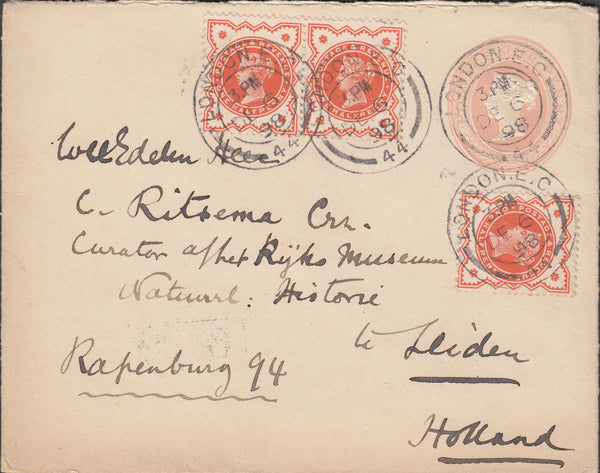 LONDON. E.C
3. PM
DE 6
98
44
LONDON. E.C
3. PM
DE 6
98
44
LONDON. E.C.
3. PM
DE 6
98
POSTAGE & REVENUE
ONE HALFPENNY
POSTAGE & REVENUE
HALFPENNY
WelEdelen Heer
C. Ritsema Crz.
Curator of het Rijks Museum
Natuurl: Historie
te Leiden
Rapenburg 94
Holland
LONDON. E.C
3. PM
DE 6
98
44
POSTAGE &